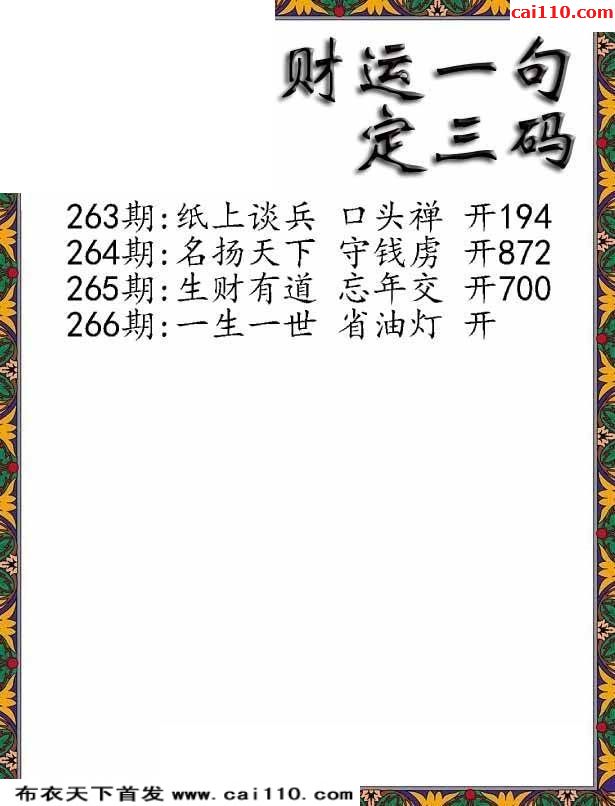 cai110.com
财运一句
定三码
263期:纸上谈兵 口头禅 开194
264期:名扬天下 守钱虏 开872
265期:生财有道 忘年交 开700
266期:一生一世 省油灯 开
布衣天下首发 www.cai110.com